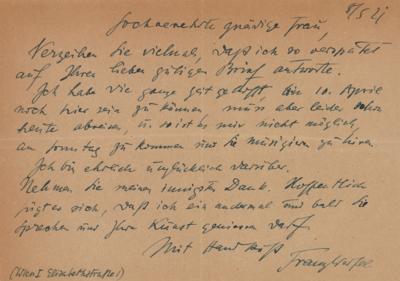 8/5 21
Hochverehrte gnädige Frau,
Verzeihen Sie vielmal, daß ich so verspätet
auf Ihren lieben gütigen Brief antworte.
Ich habe die ganze Zeit gehofft am 10. April
noch hier sein zu können muss aber leider schon
heute abreisen, u. so ist es mir nicht möglich,
am Sonntag zu kommen und Sie musizieren zu hören.
Ich bin ehrlich unglücklich darüber.
Nehmen Sie meinen innigsten Dank. Hoffentlich
fügt es sich, daß ich ein andermal und bald Sie
sprechen und Ihre Kunst geniessen darf.
Mit Handkuß
Franz Werfel
(Wien I Elisabethstraße 1)